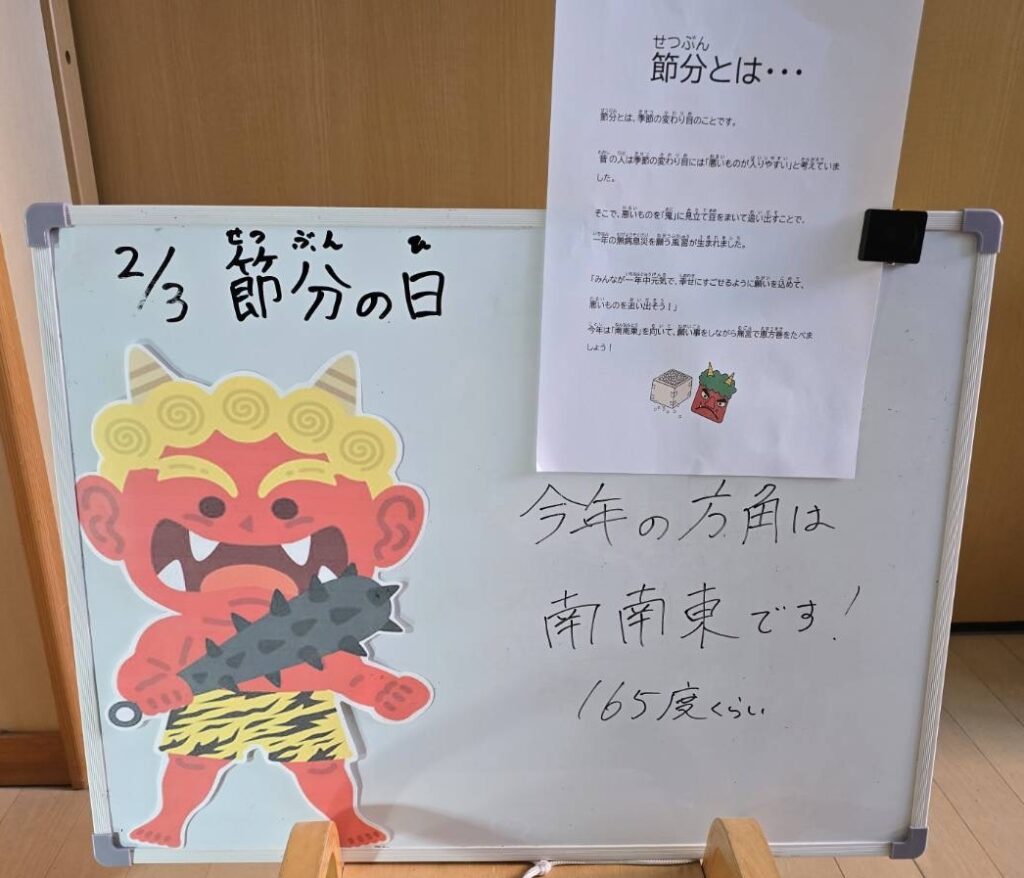 2/3 節分の日
せつ ぶん ひ
せつぶん
節分とは・・・
節分とは、季節の変わり目のことです。
昔の人は季節の変わり目には「悪いものが入りやすい」と考えていま
した。
そこで、悪いものを「鬼」に見立て豆をまいて追い出すことで、
一年の無病息災を願う風習が生まれました。
「みんなが一年中元気で、幸せにすごせるように願いを込めて、
悪いものを追い出そう!」
今年は「南南東」を向いて、願い事をしながら無言で恵方巻をたべま
しょう!
今年の方角は
南南東です!
165度くらい